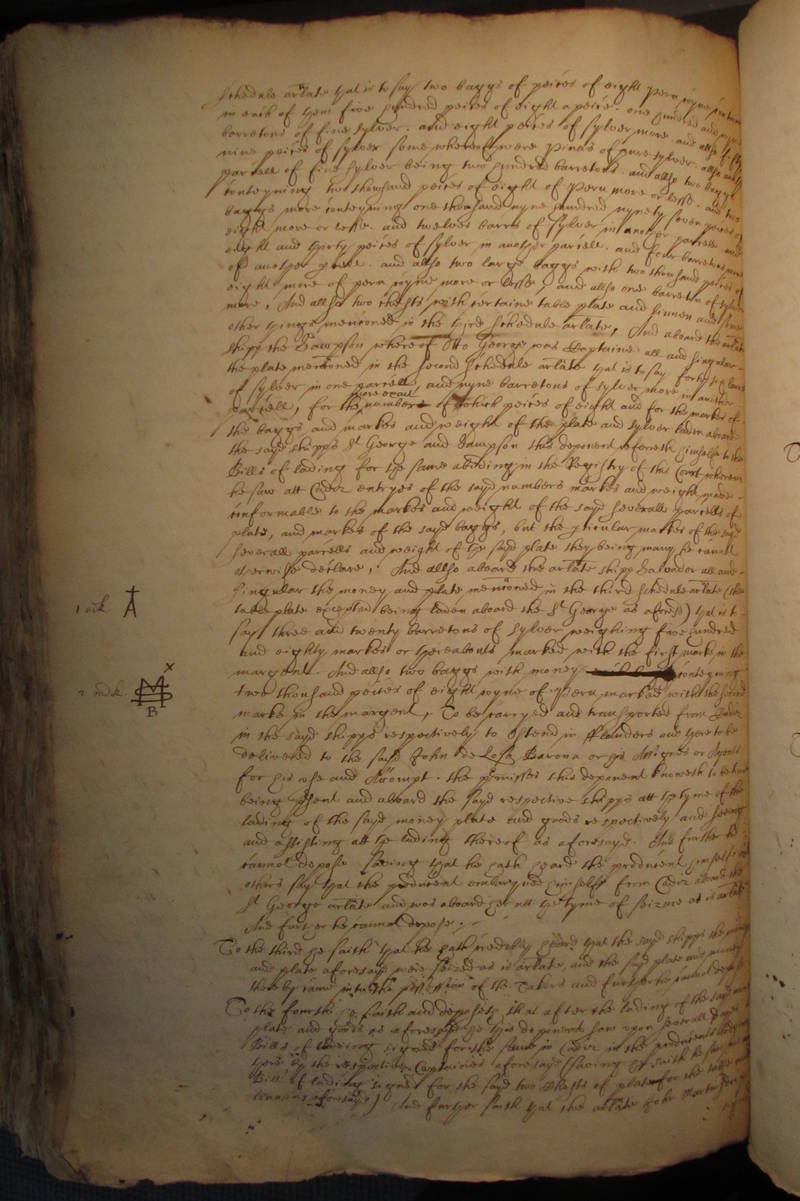 Schedule arlate that is to say two baggs of peices of eight Peru nyne
in each of them five hundred peices of eight a peice. one hundred and
barretons of fine sylver. and eight peices of sylver more and allso fifty
nine peices of sylver some whereof were Pinas of pure sylver. allso
parcell of fine sylver being two hundred barretons. and allso two baggs
conteyning two thousand peices of eight of Peru more or lesse. and two
baggs more conteyning one thousand nyne hundred nynety seven peices of
eight more or lesse. and twelves barrs of sylver in another parcell and
eight and thirty peices of sylver in another parcell. and four barretons
of another parcell. and allso two large baggs with two thousand peices of
eight more of peru nyne more or lesse, and allso one barreton of sylver
more, And allso two chests with certaine table plate and linnen and
other things mentioned in the third schedule arlate, And aboard the arlate
shipp the Sampson whereof Otto George was Captaine all and singular
the plate mentioned in the second schedule arlate that is to say forty
of sylver in one parcell, and nyne barretons of sylver more in another
more exact
parcell, for the numbers of which peices of eight and for the markes of
the baggs and markes and weight of the plate and sylver laden aboard
the sayd shipps St George and Sampson this deponent referreth himselfe to the
Bills of lading for the same abiding in the Registry of this Court wherein
he saw att Cadiz entryes of the sayd numbers markes and weight made
conformable to the markes and weight of the sayd severall parcells of
plate, and markes of the sayd baggs, but the perticular markes of the sayd
severall parcells and weight of the sayd plate they being many he cannot
otherwise declare, And allso aboard the arlate shipp Salvador all and
singular the money and plate mentioned in the third schedule arlate (the
table plate excepted being laden aboard the St George as aforesd) that is to
say three and twenty barretons of sylver weighing five hundred
and eighty markes or thereabouts marked with the first marke in the
1 mk.
margent. And allso two baggs with money conteyning
two thousand peices of eight nyne of Peru marked with the second
2 mk. B
marke in the margent, To be carryed and transported from Cadiz
in the sayd shipps respectively to Ostend in Flanders and there to be
delivered to the sayd John de Barona or his Assignes
for his use and Accompt. the premisses this deponent knoweth to be true
being present and aboard the sayd respective shipps att the tyme of the
lading of the sayd money plate and goods respectively and seeing
and assisting att the lading thereof as aforesayd. And further he
cannot depose saving that he hath heard the producent himselfe and
others say that the producent embarqued himselfe from Cadiz aboard the
St George arlate and was aboard her att the tyme of seizure as is arlate
And further he cannot depose.
To the third he saith that he hath credibly heard that the sayd shipps the money
and plate aforesayd were seized as is arlate, and the sayd plate and money
thereby came into the possession of the Takers and further he cannot depose
To the fourth he saith and deposeth that after the lading of the sayd
plate and goods as aforesayd he this deponent saw severall
Bills of lading signed for the same in Cadiz in the producents
there by the respective Captaines aforesayd (saving he saith he saw
Bill of lading signed for the sayd two chests of plate for the table and
linnens aforesayd) And further saith that the arlate John Martin